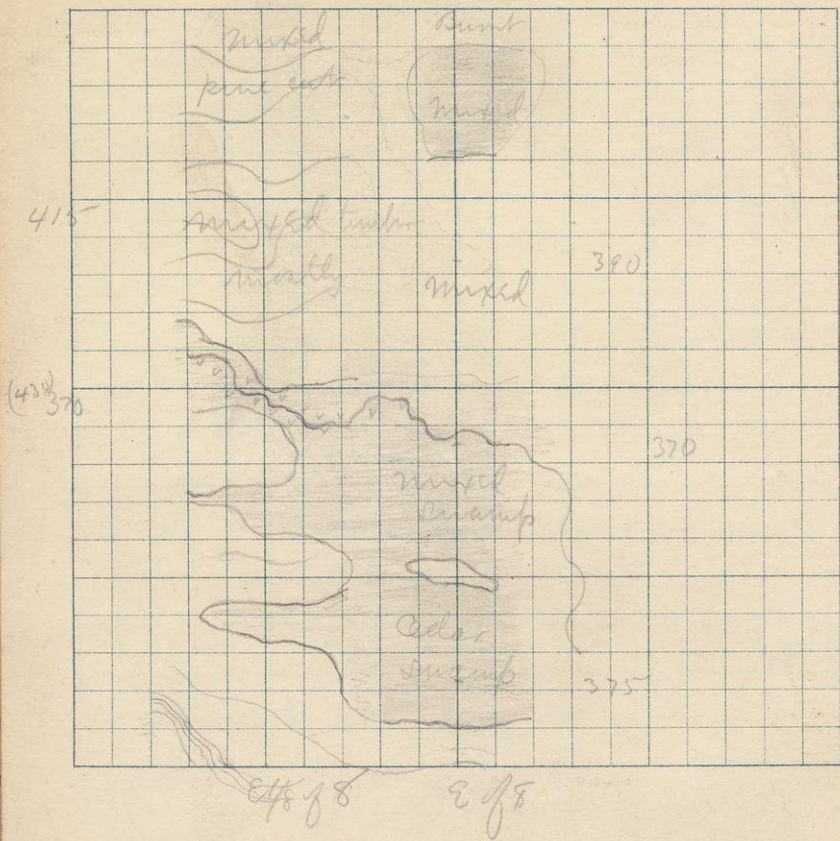 Mixed
Burnt
pine cut
Mixed
415
Mixed timber
mostly
Mixed
390
370
370
Mixed
swamp
Cedar
swamp
375
of 8
E of 8